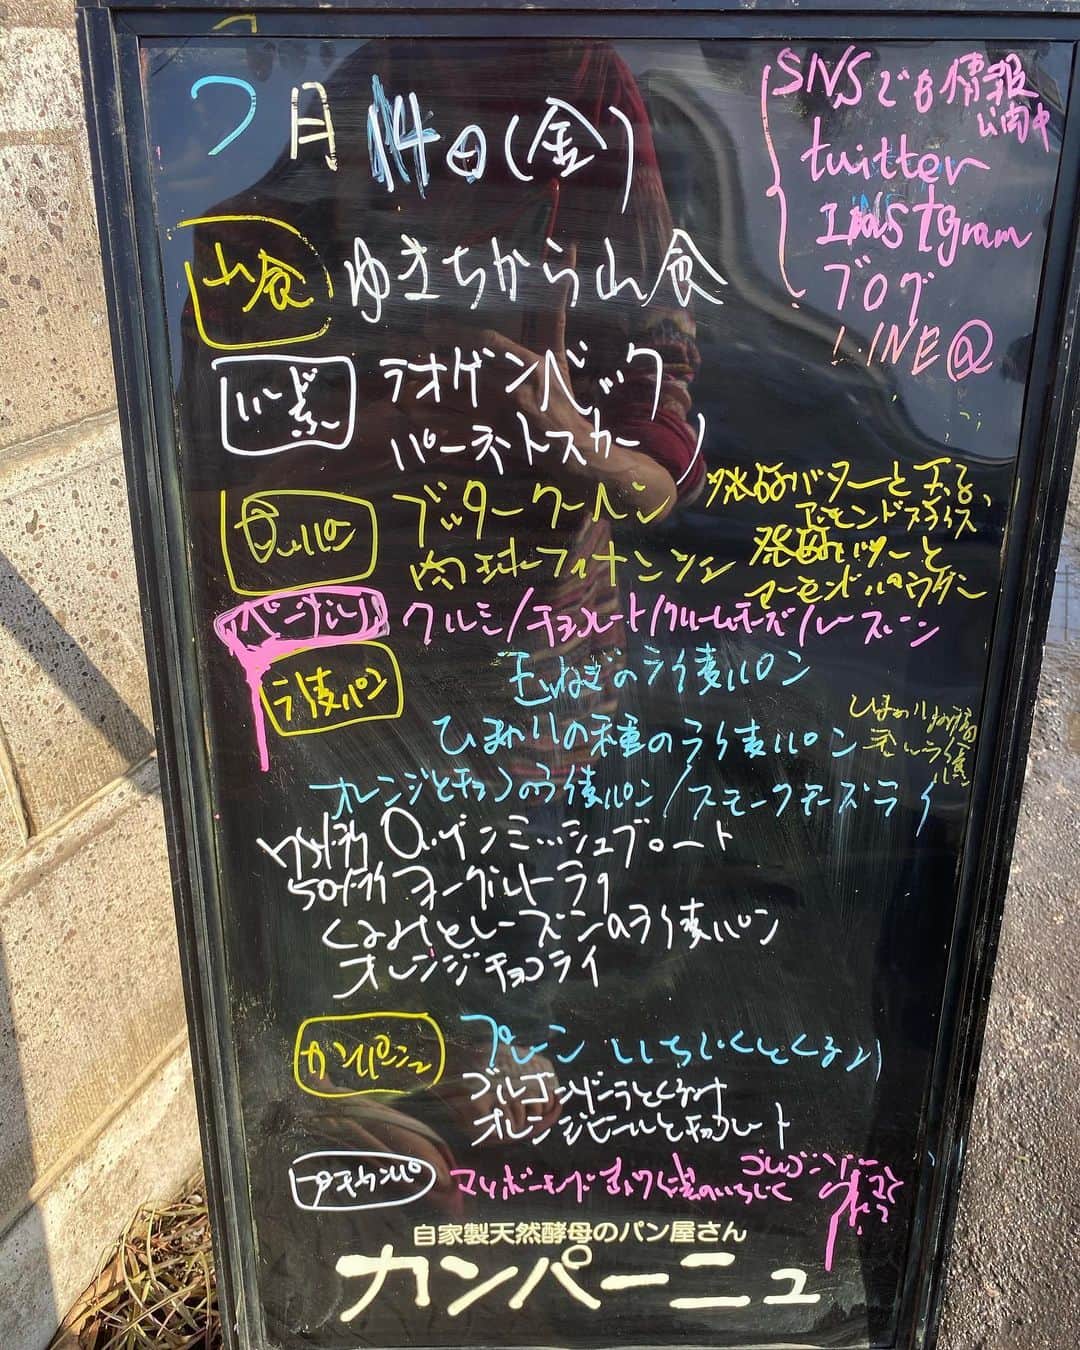 7月14日(金)
SNSでも情報
公開中
twitter
Instagram
ブログ
LINE@
山食 ゆきちから山食
ハード系 ラオゲンベック
バーネトースカー
ブッタークーヘン 発酵バターと玉子、
アーモンドスライス
肉球フィナンシェ 発酵バターと
アーモンドパウダー
ベーグル クルミ/チョコレート/クリームチーズ/レーズン
ライ麦パン 玉ねぎのライ麦パン
ひまわりの種のライ麦パン
オレンジとチョコのライ麦パン/スモークチーズライ
ロッゲンミッシュブロート
50%ライ ヨーグルトライ
くるみとレーズンのライ麦パン
オレンジチョコライ
カンパーニュ プレーン いちじくとくるみ
ゴルゴンゾーラとくるみ
オレンジピールとチョコレート
プチカンパ マカボーモンド いちじく ゴルゴンゾーラ
自家製天然酵母のパン屋さん
カンパーニュ